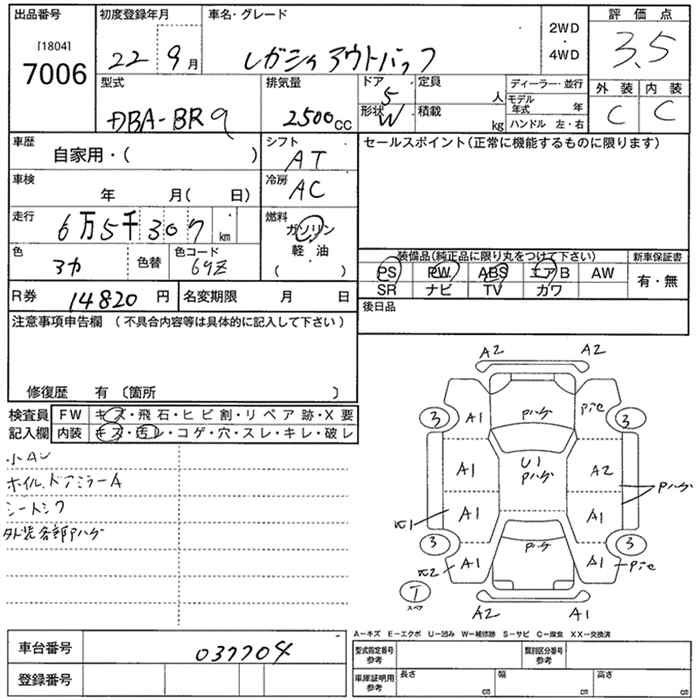 出品番号 初度登録年月 車名・グレード 2WD・4WD 評価点
[1804] 7006 22 9月 レガシィ アウトバック 3.5
型式 DBA-BR9 排気量 2500cc ドア 5 定員 人 ディーラー・並行 外装 C 内装 C
形状 W 積載 kg モデル年式 年 ハンドル 左・右
車歴 自家用・( ) シフト AT セールスポイント(正常に機能するものに限ります)
車検 年 月( 日) 冷房 AC
走行 6万5千307km 燃料 ガソリン 軽油 ( )
色 色替 色コード
装備品(純正品に限り丸をつけて下さい) 新車保証書
PS PW ABS エアB AW 有・無
SR ナビ TV カワ
R券 14820円 名変期限 月 日 後日品
注意事項申告欄 (不具合内容等は具体的に記入して下さい)
修復歴 有 〔箇所 〕
検査員 FW キズ・飛石・ヒビ割・リペア跡・X要
記入欄 内装 キズ・汚レ・コゲ・穴・スレ・キレ・破レ
小AU
ホイル、ドアミラーA
シートシワ
外装各部Pハゲ
A2 A2
3 A1 Pハゲ 3
A1 U1 Pハゲ A2 Pハゲ
A1 A1
3 A1 Pハゲ A1 3
T スペア
A2 A1
A-キズ E-エクボ U-凹み W-補修跡 S-サビ C-腐食 XX-交換済
車台番号 037704 型式指定番号 参考 類別区分番号 参考
登録番号 車庫証明用 参考 長さ cm 幅 cm 高さ cm